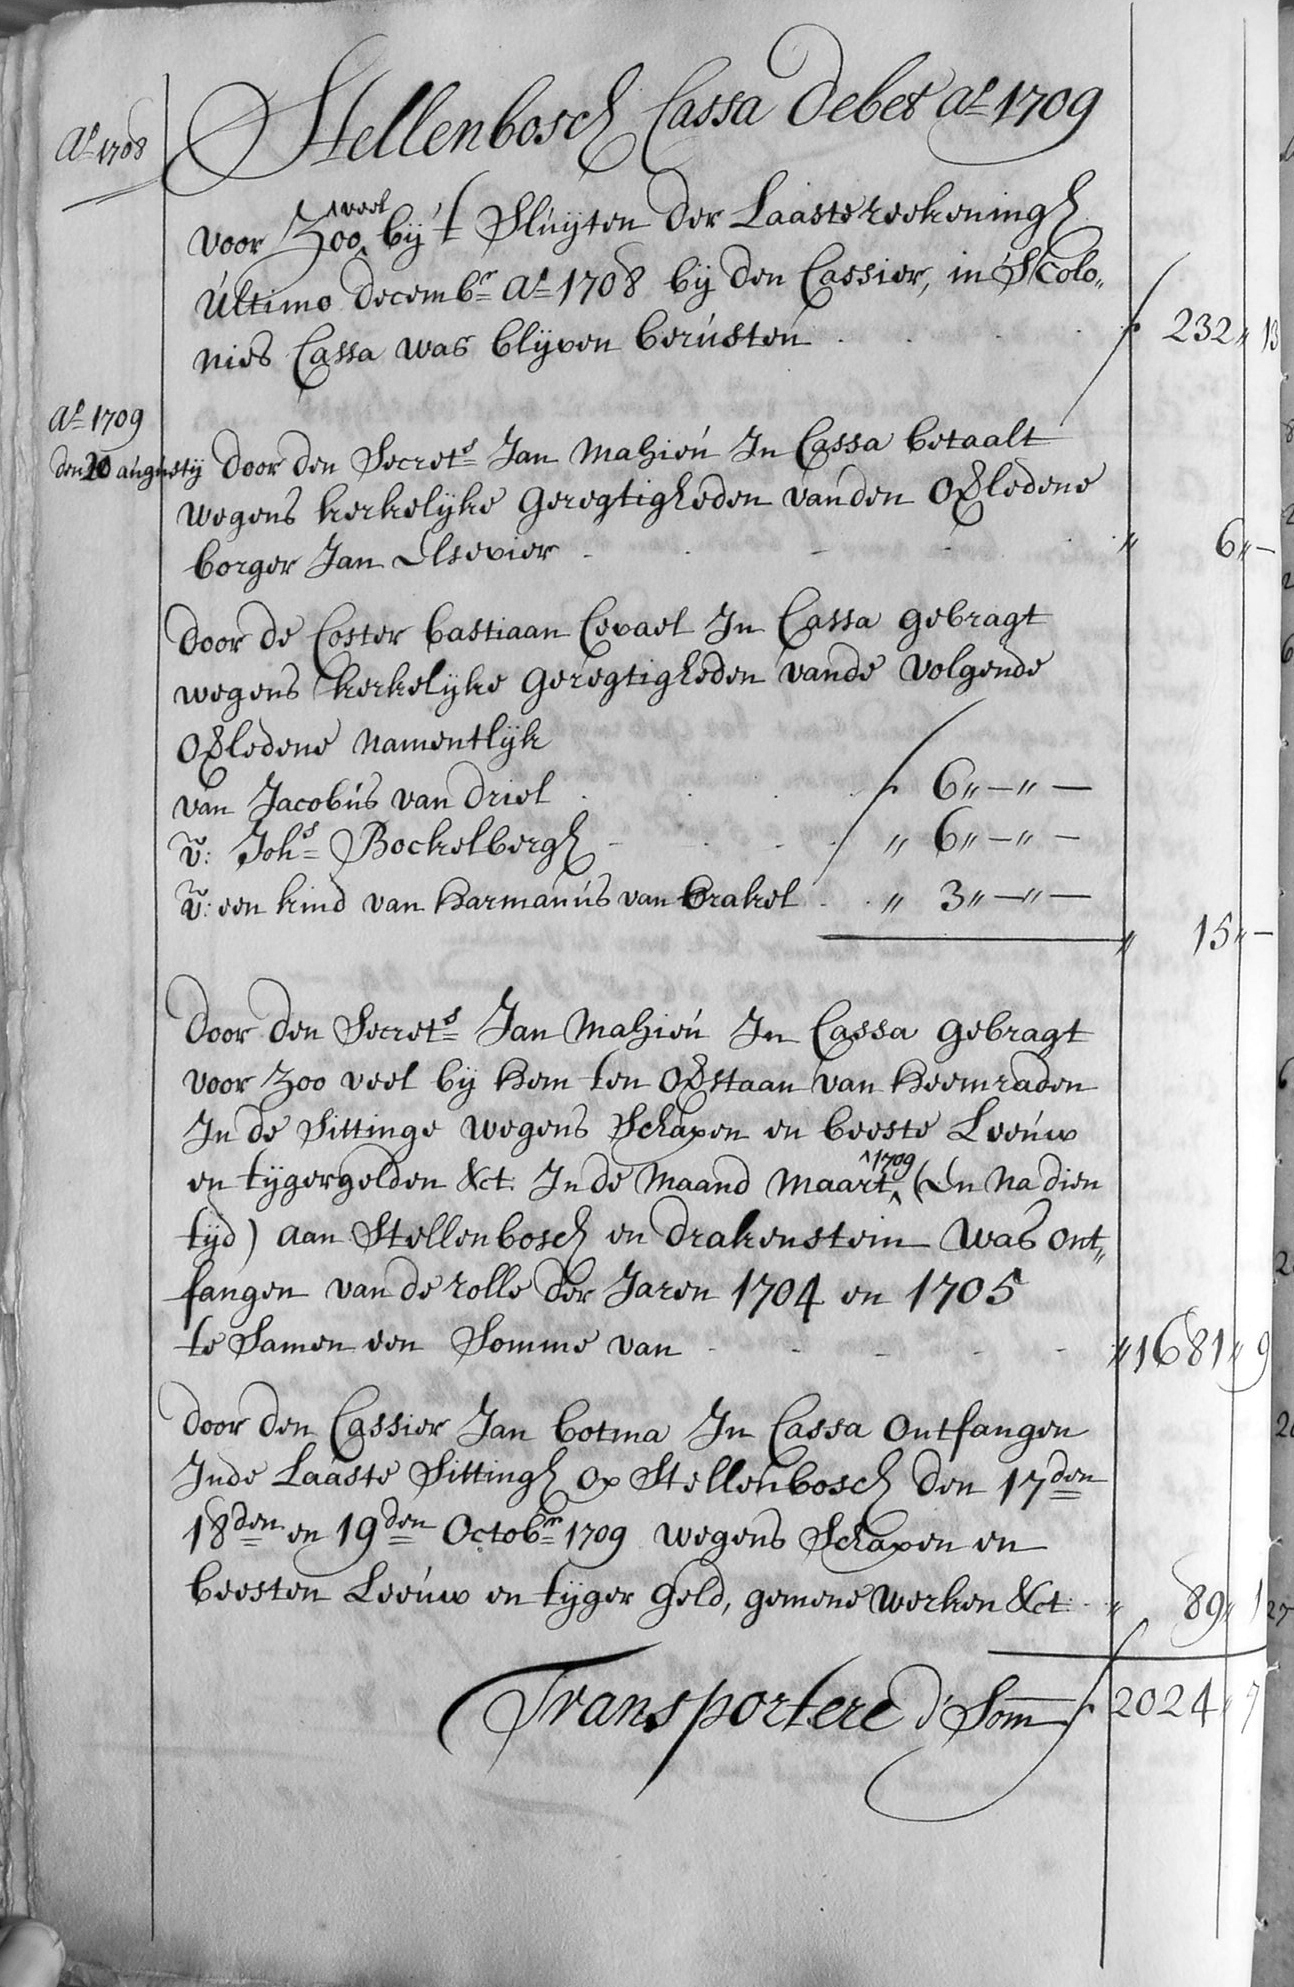 Stellenbosch Cassa debet Ao 1709
Ao 1708
voor Zoo veel bij 't Sluijten der Laaste reekeningh
Ultimo Decembr Ao 1708 bij den Cassier, in 's Colo„
nies Cassa was blijven berusten . . . ƒ 232„ 13
Ao 1709
den 20 augustij door den Secrets Jan Mahieu In Cassa betaalt
wegens kerkelijke geregtigheden vanden Overledene
borger Jan Elsevier - - - „ 6„ —
door de Coster bastiaan Cevael In Cassa gebragt
wegens kerkelijke geregtigheden vande volgende
Overledene namentlijk
van Jacobus van driel . . . ƒ 6„—„—
v: Johs Bockelbergh - . . „ 6„—„—
v: een kind van Harmanus van brakel . . „ 3„—„—
„ 15„ —
door den Secrets Jan Mahieu In Cassa gebragt
voor zoo veel bij hem ten Overstaan van Heemraden
In de Sittinge wegens Schapen en beeste Leeuw
en tijgergelden &ct: In de Maand Maart 1709 (En na dien
tijd) aan Stellenbosch en drakenstein was ont„
fangen van de rolle der Jaren 1704 en 1705
te Samen een Somme van - - - „ 1681„ 9
door den Cassier Jan botma In Cassa ontfangen
In de Laaste Sittingh op Stellenbosch den 17den
18den en 19den Octobr 1709 wegens Schapen en
beesten Leeuw en tijger geld, gemene werken &ct: „ 89„ 1
Transportere d' Som ƒ 2024„ 7